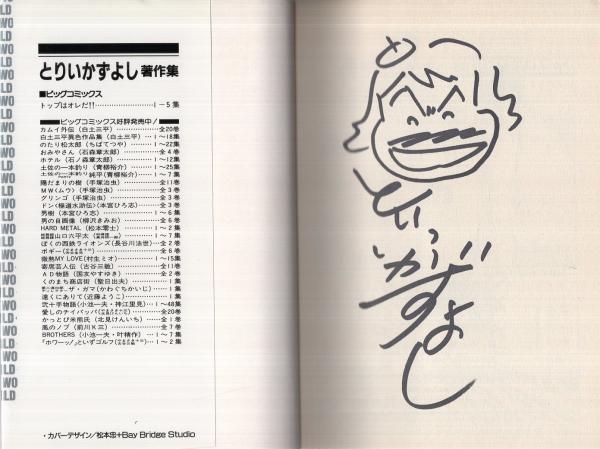 とりいかずよし著作集
■ビッグコミックス
トップはオレだ!!……………1～5集
ビッグコミックス好評発売中!
カムイ外伝(白土三平)……………全20巻
白土三平異色作品集(白土三平)…1～18集
のたり松太郎(ちばてつや)………1～22集
おみやさん(石森章太郎)…………全4巻
ホテル(石ノ森章太郎)……………1～12集
土佐の一本釣り(青柳裕介)………1～25集
土佐の一本釣り純平(青柳裕介)…1～7集
陽だまりの樹(手塚治虫)…………全11巻
MW〈ムウ〉(手塚治虫)……………全3巻
グリンゴ(手塚治虫)………………全3巻
ドン〈極道水滸伝〉(本宮ひろ志)…全3巻
男樹(本宮ひろ志)…………………1～6集
男の自画像(柳沢きみお)…………全6巻
HARD METAL(松本零士)…………1～2集
山口六平太…1～7集
ぼくの西鉄ライオンズ(長谷川法世)…全2巻
ボギー…全6巻
微熱MY LOVE(村生ミオ)…………1～16集
寄席芸人伝(古谷三敏)……………全11巻
AD物語(国友やすゆき)……………全2巻
くのまち商店街(聖日出夫)………1集
ザ・ガマ(かわぐちかいじ)…1集
遠くにありて(近藤ようこ)………1集
弐十手物語(小池一夫・神江里見)…1～48集
愛しのチイパッパ…全20巻
かっとび米熊氏(北見けんいち)…全1巻
風のノブ(前川K三)………………全7巻
BROTHERS(小池一夫・叶精作)…1～7集
「ホワーッ!」といずゴルフ…1～2集
・カバーデザイン/松本忠+Bay Bridge Studio
とりい
かずよし